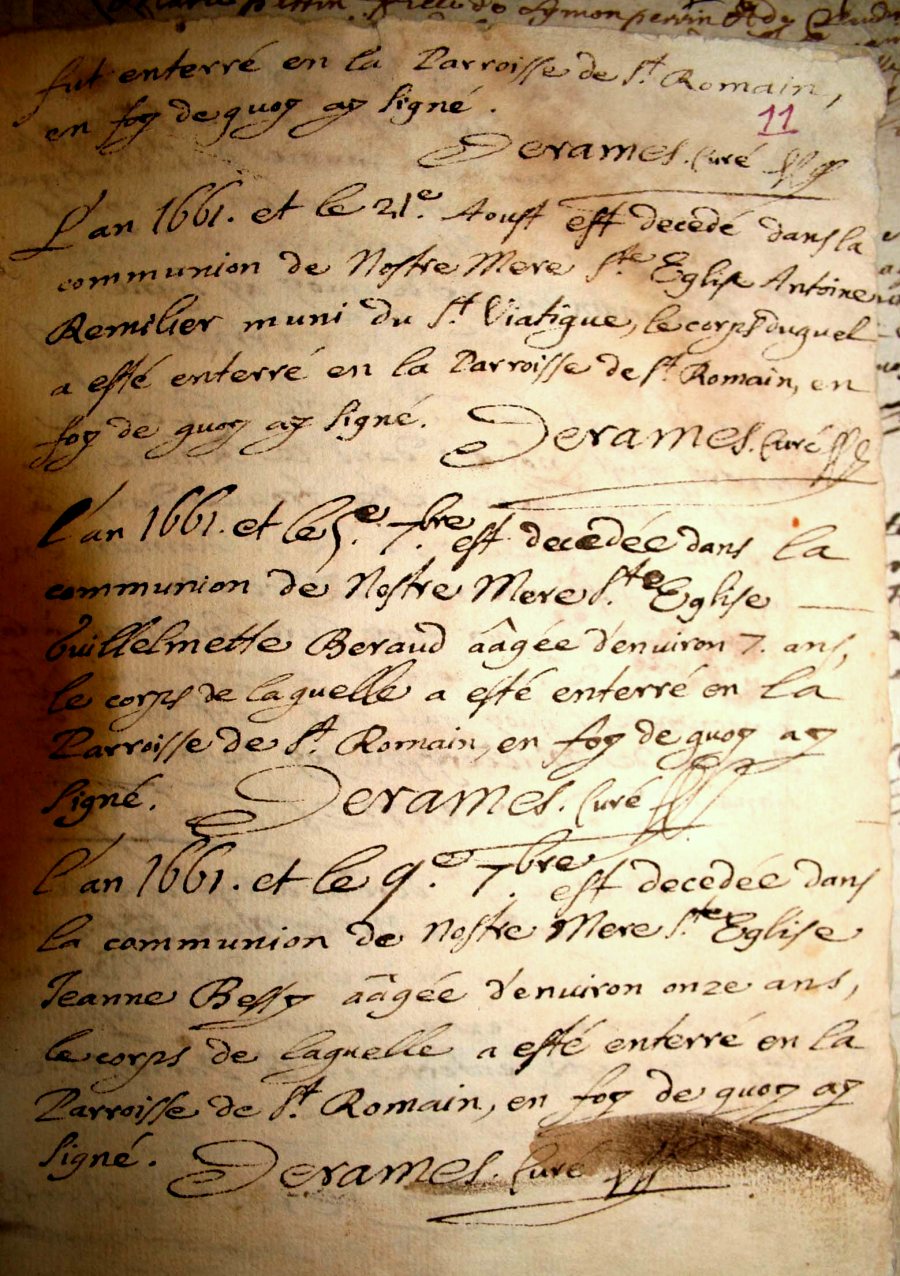 fille de Symon perrin et de Claude
fut enterré en la Parroisse de St Romain,
en foy de quoy ay signé.
11
Derames. Curé
L'an 1661. et le 21e. Aoust est decedé dans la
communion de Nostre Mere Ste Eglise Antoine
Remilier muni du St Viatique, le corps duquel
a esté enterré en la Parroisse de St Romain, en
foy de quoy ay signé.
Derames. Curé
L'an 1661. et le 5e. 7bre. est decedée dans la
communion de Nostre Mere Ste Eglise
Guillelmette Beraud ââgée d'environ 7. ans,
le corps de laquelle a esté enterré en la
Parroisse de St Romain, en foy de quoy ay
signé.
Derames. Curé
L'an 1661. et le 9e. 7bre. est decedée dans
la communion de Nostre Mere Ste Eglise
Jeanne Bessy ââgée d'environ onze ans,
le corps de laquelle a esté enterré en la
Parroisse de St Romain, en foy de quoy ay
signé.
Derames. Curé